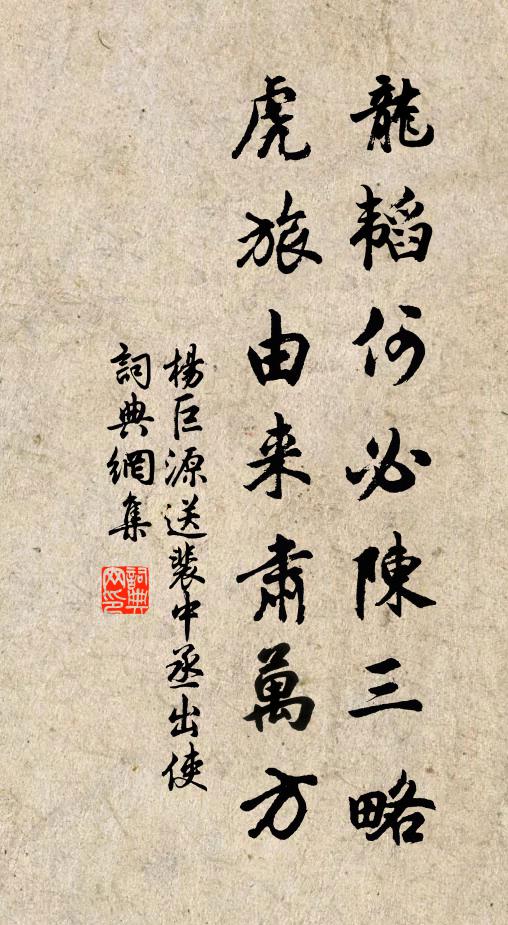 龍韜何必陳三略
虎旅由来肅萬方
楊巨源送裴中丞出使
詞典網集
詞典
网印